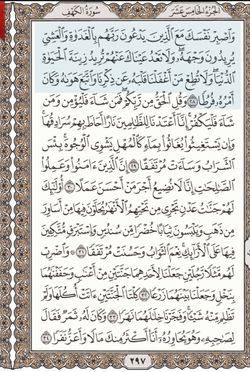 الجزء الخامس عشر سورة الكهف
وَٱصْبِرْ نَفْسَكَ مَعَ ٱلَّذِينَ يَدْعُونَ رَبَّهُم بِٱلْغَدَوٰةِ وَٱلْعَشِيِّ
يُرِيدُونَ وَجْهَهُۥ ۖ وَلَا تَعْدُ عَيْنَاكَ عَنْهُمْ تُرِيدُ زِينَةَ ٱلْحَيَوٰةِ
ٱلدُّنْيَا ۖ وَلَا تُطِعْ مَنْ أَغْفَلْنَا قَلْبَهُۥ عَن ذِكْرِنَا وَٱتَّبَعَ هَوَىٰهُ وَكَانَ
أَمْرُهُۥ فُرُطًا ٢٨ وَقُلِ ٱلْحَقُّ مِن رَّبِّكُمْ ۖ فَمَن شَآءَ فَلْيُؤْمِن وَمَن
شَآءَ فَلْيَكْفُرْ ۚ إِنَّآ أَعْتَدْنَا لِلظَّٰلِمِينَ نَارًا أَحَاطَ بِهِمْ سُرَادِقُهَا ۚ
وَإِن يَسْتَغِيثُوا۟ يُغَاثُوا۟ بِمَآءٍ كَٱلْمُهْلِ يَشْوِي ٱلْوُجُوهَ ۚ بِئْسَ
ٱلشَّرَابُ وَسَآءَتْ مُرْتَفَقًا ٢٩ إِنَّ ٱلَّذِينَ ءَامَنُوا۟ وَعَمِلُوا۟
ٱلصَّٰلِحَٰتِ إِنَّا لَا نُضِيعُ أَجْرَ مَنْ أَحْسَنَ عَمَلًا ٣٠ أُو۟لَٰٓئِكَ
لَهُمْ جَنَّٰتُ عَدْنٍ تَجْرِي مِن تَحْتِهِمُ ٱلْأَنْهَٰرُ يُحَلَّوْنَ فِيهَا مِنْ أَسَاوِرَ
مِن ذَهَبٍ وَيَلْبَسُونَ ثِيَابًا خُضْرًا مِّن سُندُسٍ وَإِسْتَبْرَقٍ مُّتَّكِـِٔينَ
فِيهَا عَلَى ٱلْأَرَآئِكِ ۚ نِعْمَ ٱلثَّوَابُ وَحَسُنَتْ مُرْتَفَقًا ٣١ وَٱضْرِبْ
لَهُم مَّثَلًا رَّجُلَيْنِ جَعَلْنَا لِأَحَدِهِمَا جَنَّتَيْنِ مِنْ أَعْنَٰبٍ وَحَفَفْنَٰهُمَا
بِنَخْلٍ وَجَعَلْنَا بَيْنَهُمَا زَرْعًا ٣٢ كِلْتَا ٱلْجَنَّتَيْنِ ءَاتَتْ أُكُلَهَا وَلَمْ
تَظْلِم مِّنْهُ شَيْـًٔا ۚ وَفَجَّرْنَا خِلَٰلَهُمَا نَهَرًا ٣٣ وَكَانَ لَهُۥ ثَمَرٌ فَقَالَ
لِصَٰحِبِهِۦ وَهُوَ يُحَاوِرُهُۥٓ أَنَا۠ أَكْثَرُ مِنكَ مَالًا وَأَعَزُّ نَفَرًا ٣٤
٢٩٧